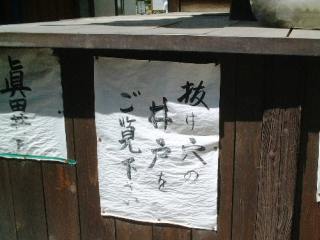 抜け穴の
井戸を
ご覧下さい
眞田井戸